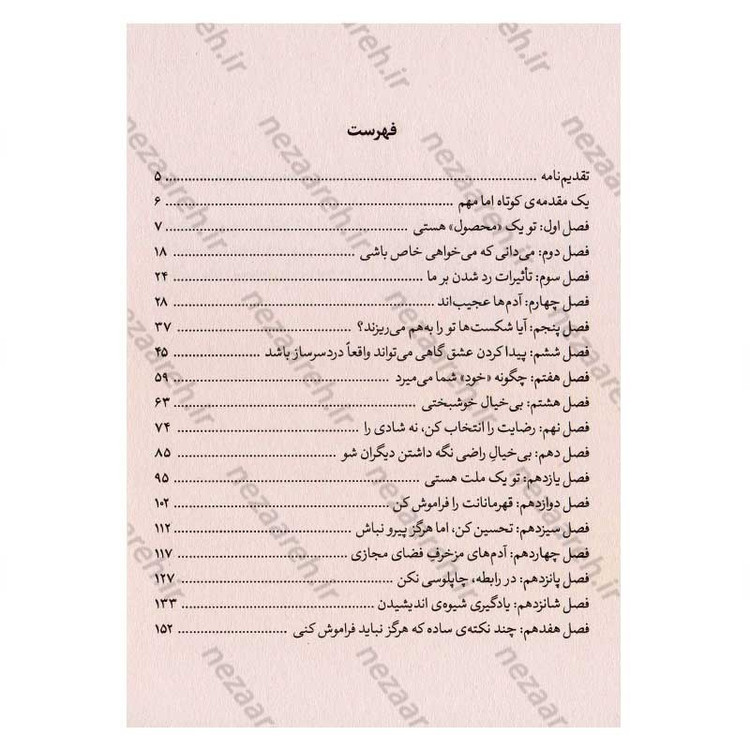 فهرست
تقدیم‌نامه ........ ۵
یک مقدمه‌ی کوتاه اما مهم ........ ۶
فصل اول: تو یک «محصول» هستی ........ ۷
فصل دوم: می‌دانی که می‌خواهی خاص باشی ........ ۱۸
فصل سوم: تأثیرات رد شدن بر ما ........ ۲۴
فصل چهارم: آدم‌ها عجیب‌اند ........ ۲۸
فصل پنجم: آیا شکست‌ها تو را به‌هم می‌ریزند؟ ........ ۳۷
فصل ششم: پیدا کردن عشق گاهی می‌تواند واقعاً دردسرساز باشد ........ ۴۵
فصل هفتم: چگونه «خود» شما می‌میرد ........ ۵۹
فصل هشتم: بی‌خیال خوشبختی ........ ۶۳
فصل نهم: رضایت را انتخاب کن، نه شادی را ........ ۷۴
فصل دهم: بی‌خیالِ راضی نگه داشتن دیگران شو ........ ۸۵
فصل یازدهم: تو یک ملت هستی ........ ۹۵
فصل دوازدهم: قهرمانانت را فراموش کن ........ ۱۰۲
فصل سیزدهم: تحسین کن، اما هرگز پیرو نباش ........ ۱۱۲
فصل چهاردهم: آدم‌های مزخرفِ فضای مجازی ........ ۱۱۷
فصل پانزدهم: در رابطه، چاپلوسی نکن ........ ۱۲۷
فصل شانزدهم: یادگیری شیوه‌ی اندیشیدن ........ ۱۳۳
فصل هفدهم: چند نکته‌ی ساده که هرگز نباید فراموش کنی ........ ۱۵۲
nezaareh.ir